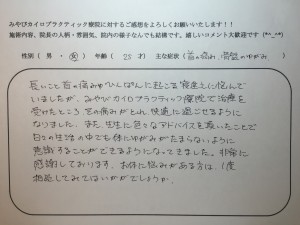 みやびカイロプラクティック療院に対するご感想をよろしくお願いいたします！！
施術内容、院長の人柄・雰囲気、院内の様子なんでも結構です。嬉しいコメント大歓迎です (*^_^*)
性別（ 男 ・ 女 ） 年齢（ 25 才） 主な症状（ 首の痛み、骨盤のゆがみ
長いこと首の痛みやひんぱんに起こる寝違えに悩んで
いましたが、みやびカイロプラクティック療院で治療を
受けたところ、首の痛みがとれ、快適に過ごせるように
なりました。また、先生に色々なアドバイスを頂いたことで
日々の生活の中でも体にゆがみがたまらないように
意識することができるようになってきました。非常に
感謝しております。お体に悩みがある方は、1度
相談してみてはいかがでしょうか。